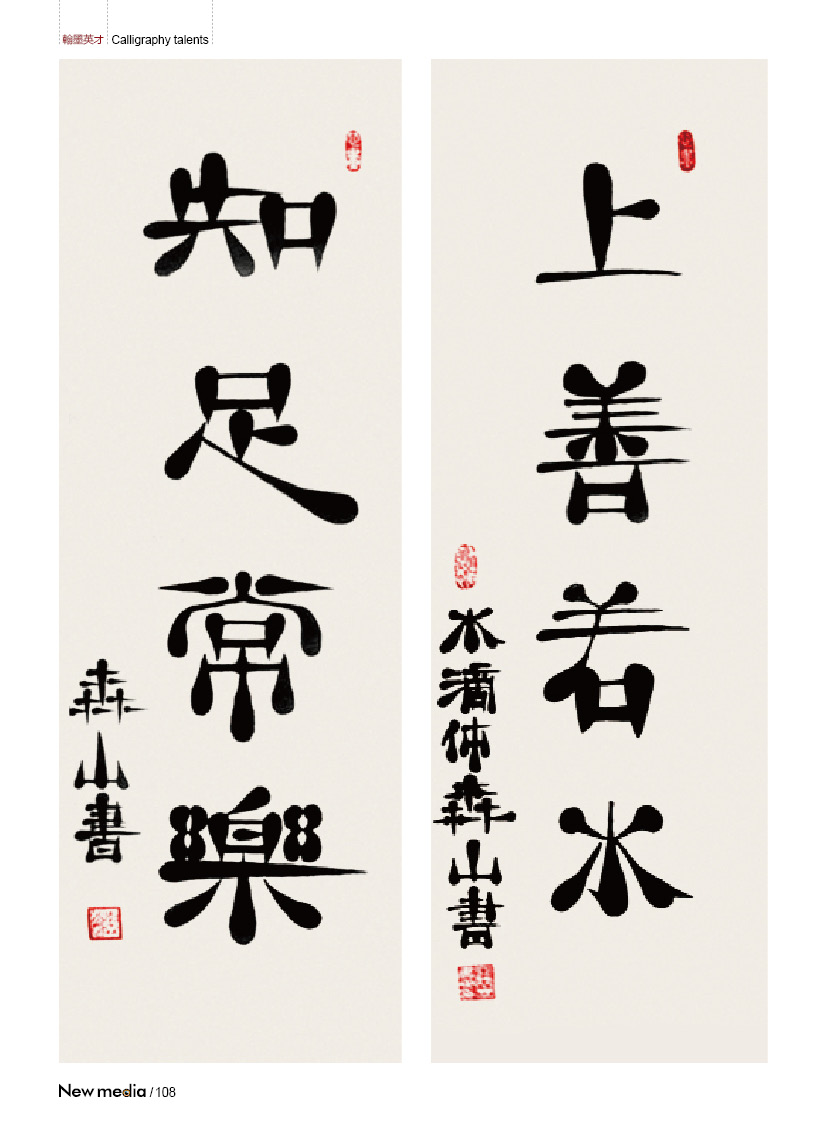 翰墨英才 Calligraphy talents
上善若水
水滴体犇山書
知足常樂
犇山書
New media / 108